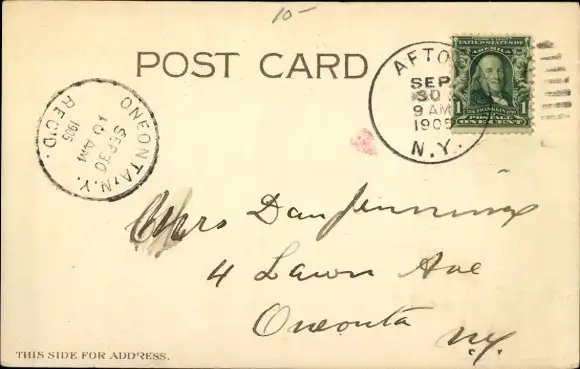 10-
POST CARD
AFTO
SEP
30
9 AM
1905
N.Y.
UNITED STATES OF
AMERICA
1 1
POSTAGE
ONE CENT
ONEONTA, N.Y.
SEP 30
10 AM
1905
REC'D.
Mrs Dan Jennings
4 Lawn Ave
Oneonta N.Y.
THIS SIDE FOR ADDRESS.